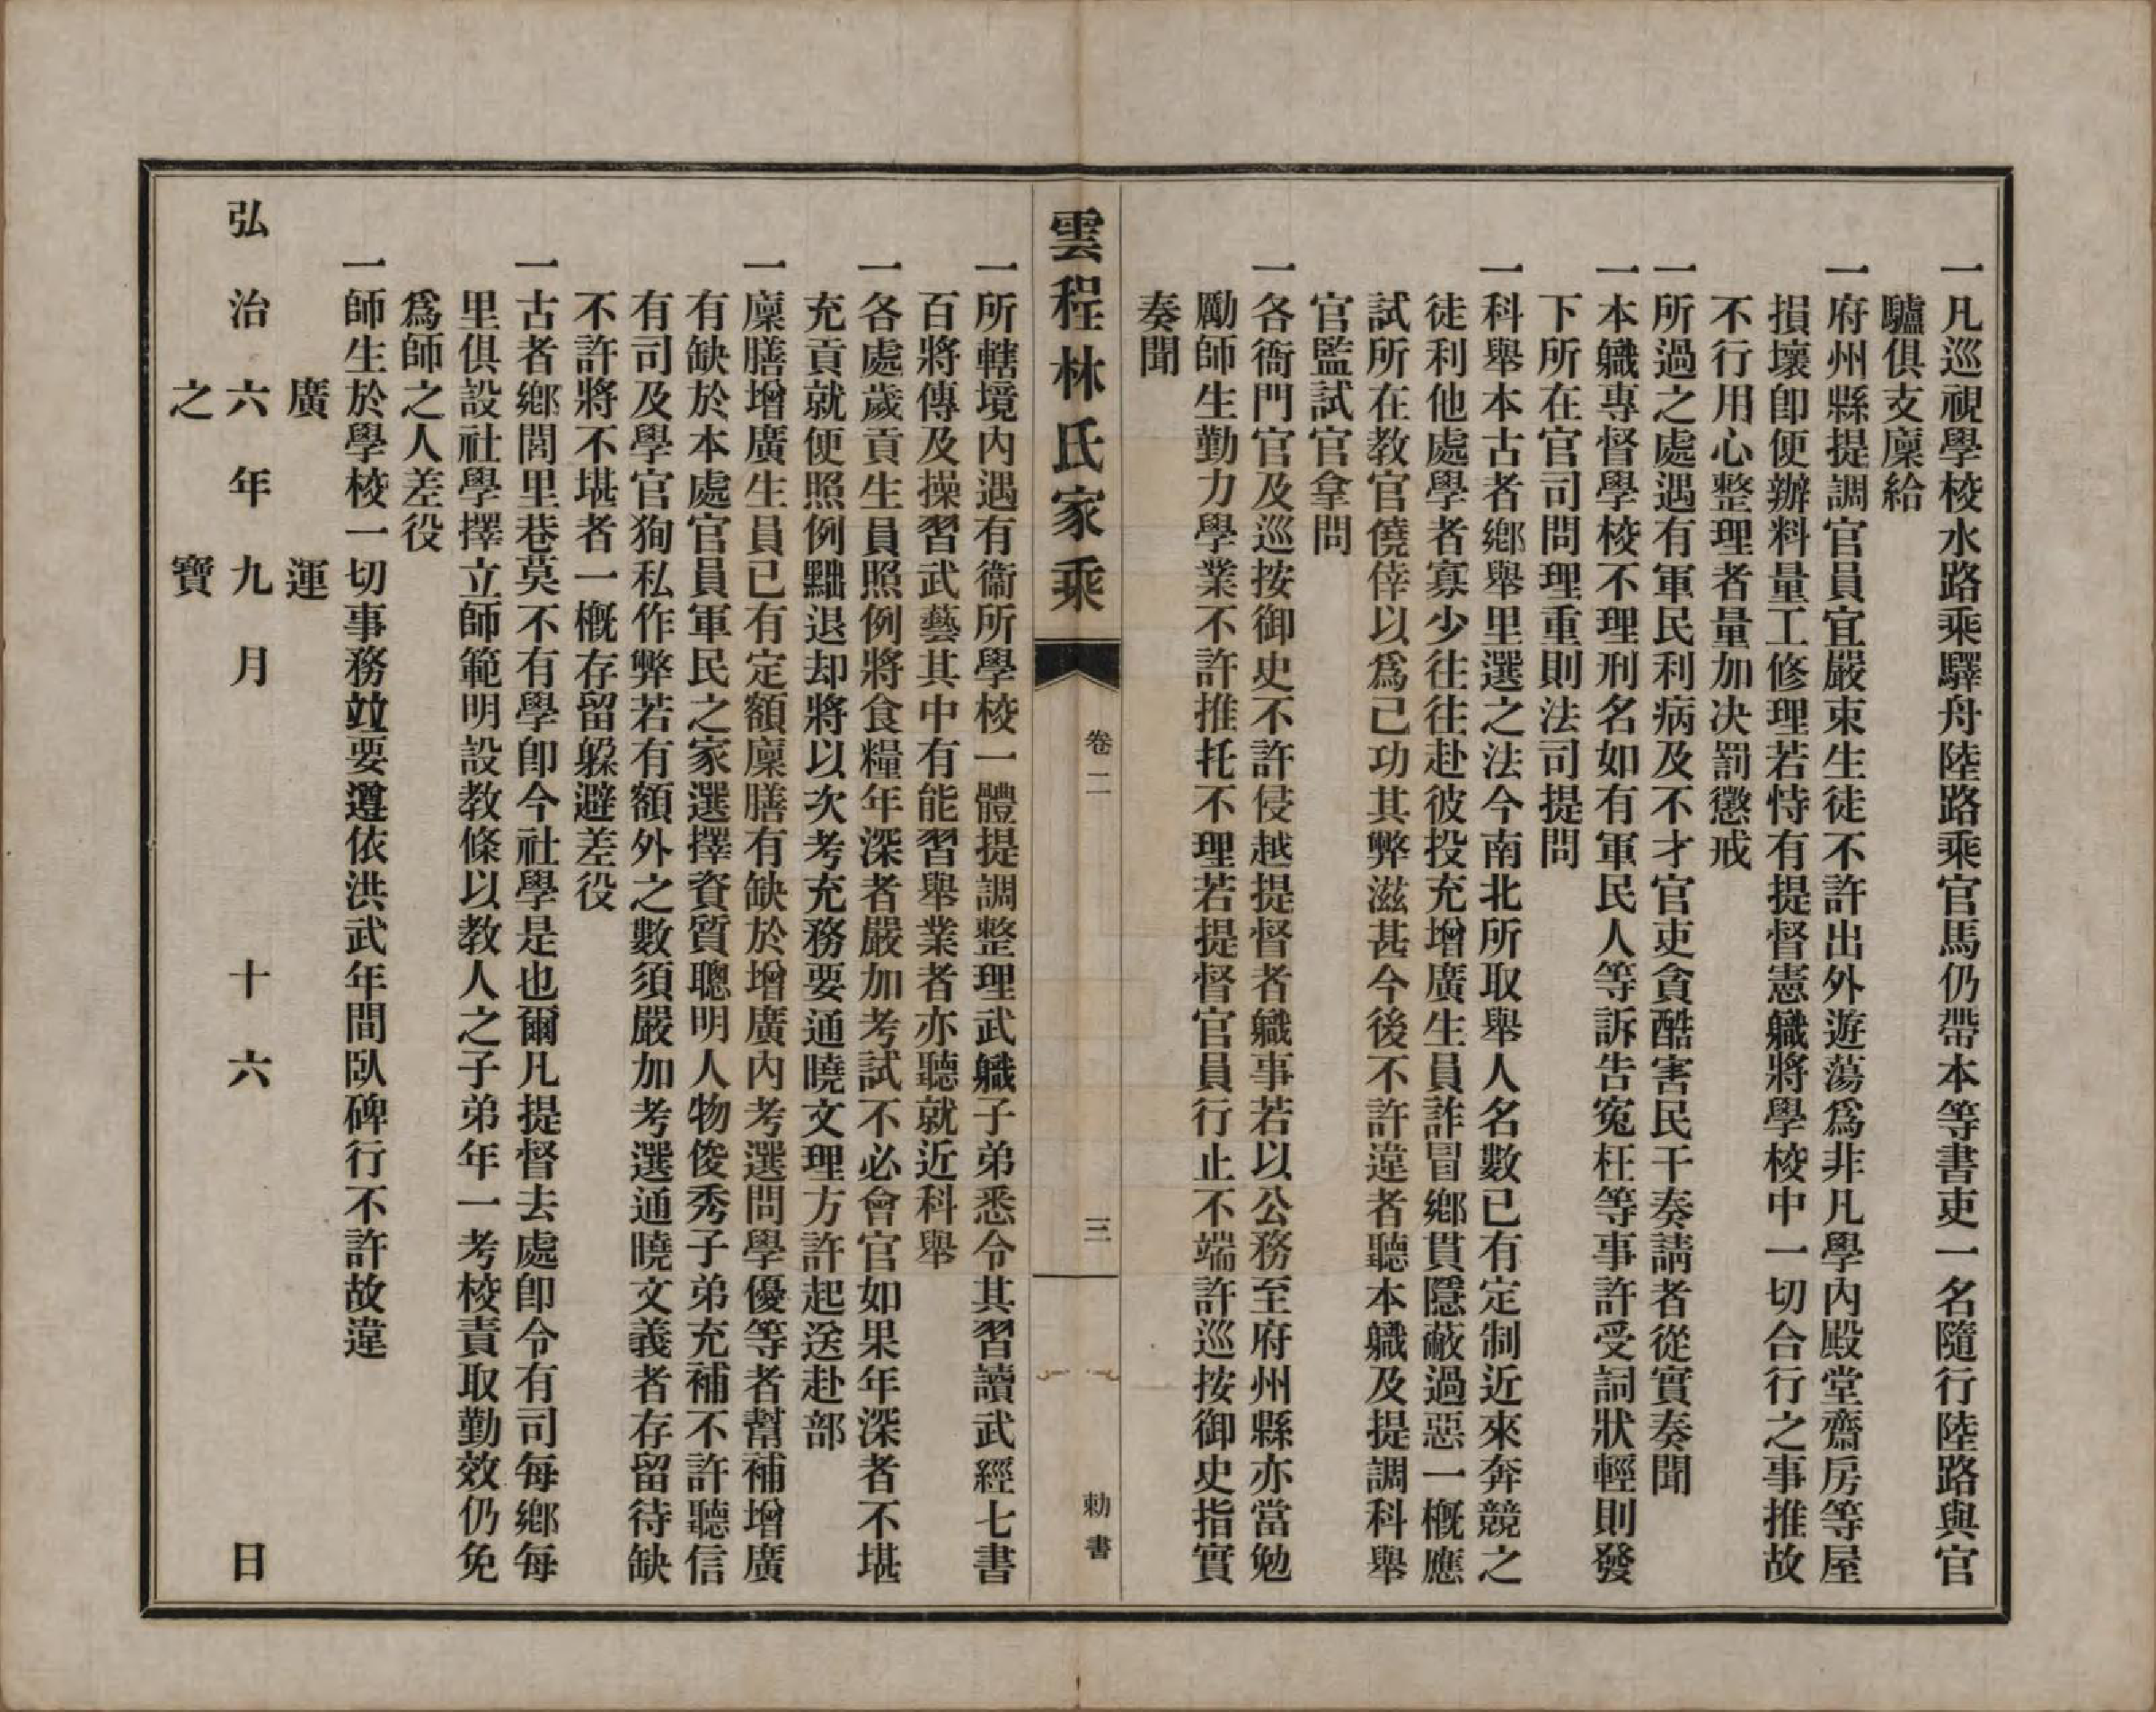 一凡巡視學校水路乘驛舟陸路乘官馬仍帶本等書吏一名隨行陸路與官
驢俱支廩給
一府州縣提調官員宜嚴束生徒不許出外遊蕩爲非凡學內殿堂齋房等屋
損壞卽便辦料量工修理若恃有提督憲軄將學校中一切合行之事推故
不行用心整理者量加决罰懲戒
一所過之處遇有軍民利病及不才官吏貪酷害民干奏請者從實奏聞
一本軄專督學校不理刑名如有軍民人等訴告寃枉等事許受詞狀輕則發
下所在官司問理重則法司提問
一科舉本古者鄉舉里選之法今南北所取舉人名數已有定制近來奔競之
徒利他處學者寡少往往赴彼投充增廣生員詐冒鄉貫隱蔽過惡一槪應
試所在教官僥倖以爲己功其弊滋甚今後不許違者聽本軄及提調科舉
官監試官拿問
一各衙門官及巡按御史不許侵越提督者軄事若以公務至府州縣亦當勉
勵師生勤力學業不許推托不理若提督官員行止不端許巡按御史指實
奏聞
雲程林氏家乘
卷二
三
勅書
一所轄境內遇有衞所學校一體提調整理武軄子弟悉令其習讀武經七書
百將傳及操習武藝其中有能習舉業者亦聽就近科舉
一各處歲貢生員照例將食糧年深者嚴加考試不必會官如果年深者不堪
充貢就便照例黜退却將以次考充務要通曉文理方許起送赴部
一廩膳增廣生員已有定額廩膳有缺於增廣內考選問學優等者幫補增廣
有缺於本處官員軍民之家選擇資質聰明人物俊秀子弟充補不許聽信
有司及學官狥私作弊若有額外之數須嚴加考選通曉文義者存留待缺
不許將不堪者一槪存留躱避差役
一古者鄉閭里巷莫不有學卽今社學是也爾凡提督去處卽令有司每鄉每
里俱設社學擇立師範明設教條以教人之子弟年一考校責取勤效仍免
爲師之人差役
一師生於學校一切事務竝要遵依洪武年間臥碑行不許故違
廣運
弘治六年九月十六日
之寶